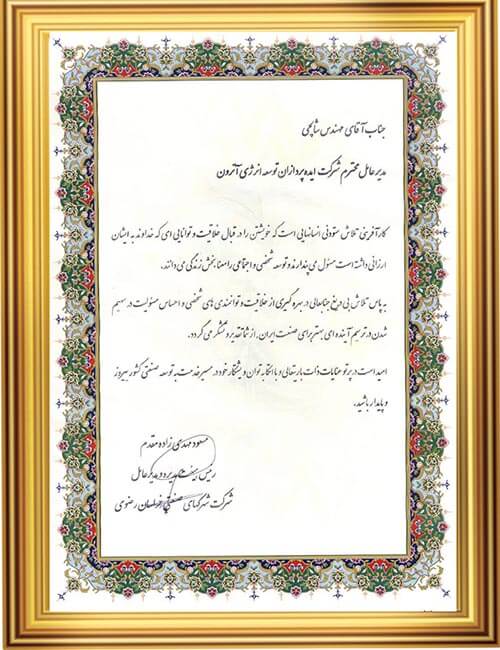 جناب آقای مهندس شالچی
مدیر عامل محترم شرکت ایده پردازان توسعه انرژی آترون
کارآفرینی تلاش ستودنی انسانهایی است که خویشتن را در قبال خلاقیت و توانایی ای که خداوند به ایشان
ارزانی داشته است مسئول می پندارند و توسعه شخصی و اجتماعی را معنا بخش زندگی می دانند.
به پاس تلاش بی دریغ جنابعالی در بهره گیری از خلاقیت و توانمندی های شخصی و احساس مسئولیت در سهیم
شدن در ترسیم آینده ای بهتر برای صنعت ایران، از شما تقدیر و تشکر می گردد.
امید است در پرتو عنایات ذات باریتعالی و با اتکا به توان و پشتکار خود در مسیر خدمت به توسعه صنعتی کشور پیروز
و پایدار باشید.
مسعود مهدی زاده مقدم
رییس هیئت مدیره و مدیر عامل
شرکت شهرکهای صنعتی خراسان رضوی